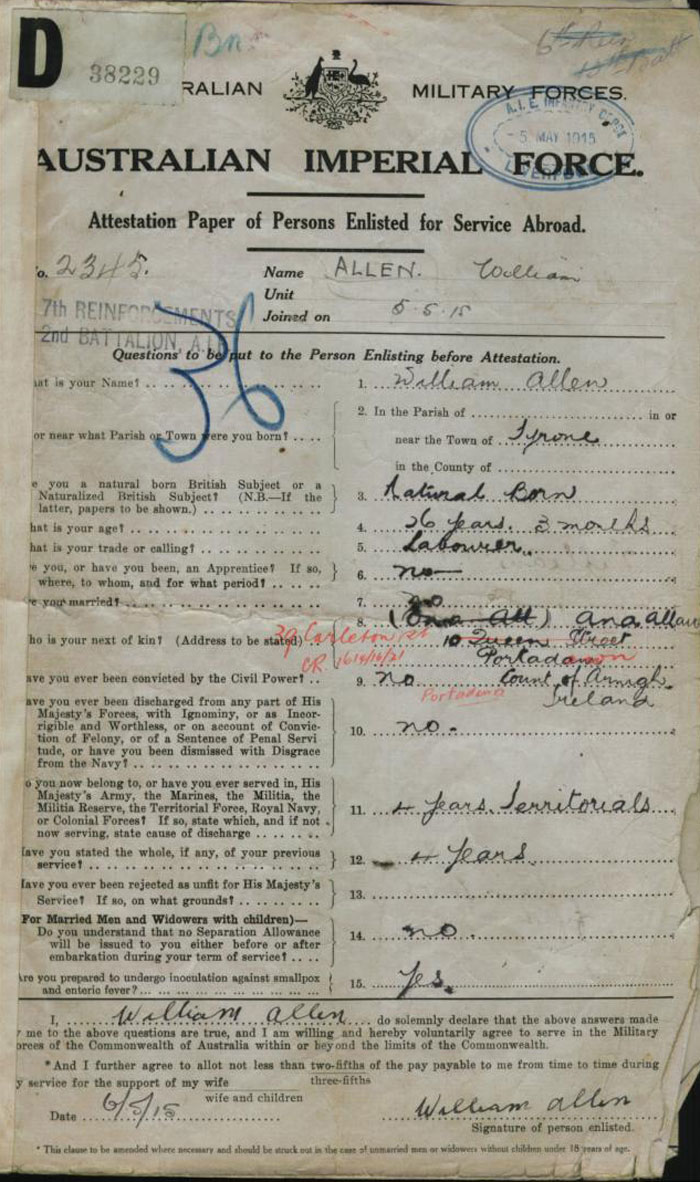 D
38229
Bn
RALIAN MILITARY FORCES.
A.I.F. INFANTRY DEPOT
5 MAY 1915
LIVERPOOL
AUSTRALIAN IMPERIAL FORCE.
Attestation Paper of Persons Enlisted for Service Abroad.
No. 2345. Name ALLEN. William
Unit
Joined on 5.5.15
7th REINFORCEMENTS
2nd BATTALION, A.I.F.
36
Questions to be put to the Person Enlisting before Attestation.
hat is your Name? 1. William Allen
2. In the Parish of in or
or near what Parish or Town were you born? near the Town of Tyrone
in the County of
e you a natural born British Subject or a
Naturalized British Subject? (N.B.—If the
latter, papers to be shown.) 3. Natural Born
hat is your age? 4. 26 years. 3 months
hat is your trade or calling? 5. Labourer.
e you, or have you been, an Apprentice? If so,
where, to whom, and for what period? 6. no
e you married? 7. no
8. Ana Allan
ho is your next of kin? (Address to be stated) 39 Carleton St 10 Queen Street
CR Portadown
ave you ever been convicted by the Civil Power? 9. no Count of Armagh
Ireland
ave you ever been discharged from any part of His
Majesty's Forces, with Ignominy, or as Incor-
rigible and Worthless, or on account of Convic-
tion of Felony, or of a Sentence of Penal Servi-
tude, or have you been dismissed with Disgrace
from the Navy? 10. no.
o you now belong to, or have you ever served in, His
Majesty's Army, the Marines, the Militia, the
Militia Reserve, the Territorial Force, Royal Navy,
or Colonial Forces? If so, state which, and if not
now serving, state cause of discharge 11. 4 years Territorials
Have you stated the whole, if any, of your previous
service? 12. 4 years.
Have you ever been rejected as unfit for His Majesty's
Service? If so, on what grounds? 13.
For Married Men and Widowers with children)—
Do you understand that no Separation Allowance
will be issued to you either before or after
embarkation during your term of service? 14. no.
Are you prepared to undergo inoculation against smallpox
and enteric fever? 15. Yes.
I, William Allen do solemnly declare that the above answers made
y me to the above questions are true, and I am willing and hereby voluntarily agree to serve in the Military
orces of the Commonwealth of Australia within or beyond the limits of the Commonwealth.
*And I further agree to allot not less than two-fifths of the pay payable to me from time to time during
three-fifths
y service for the support of my wife
wife and children
Date 6/5/15 William Allen
Signature of person enlisted.
* This clause to be amended where necessary and should be struck out in the case of unmarried men or widowers without children under 18 years of age.